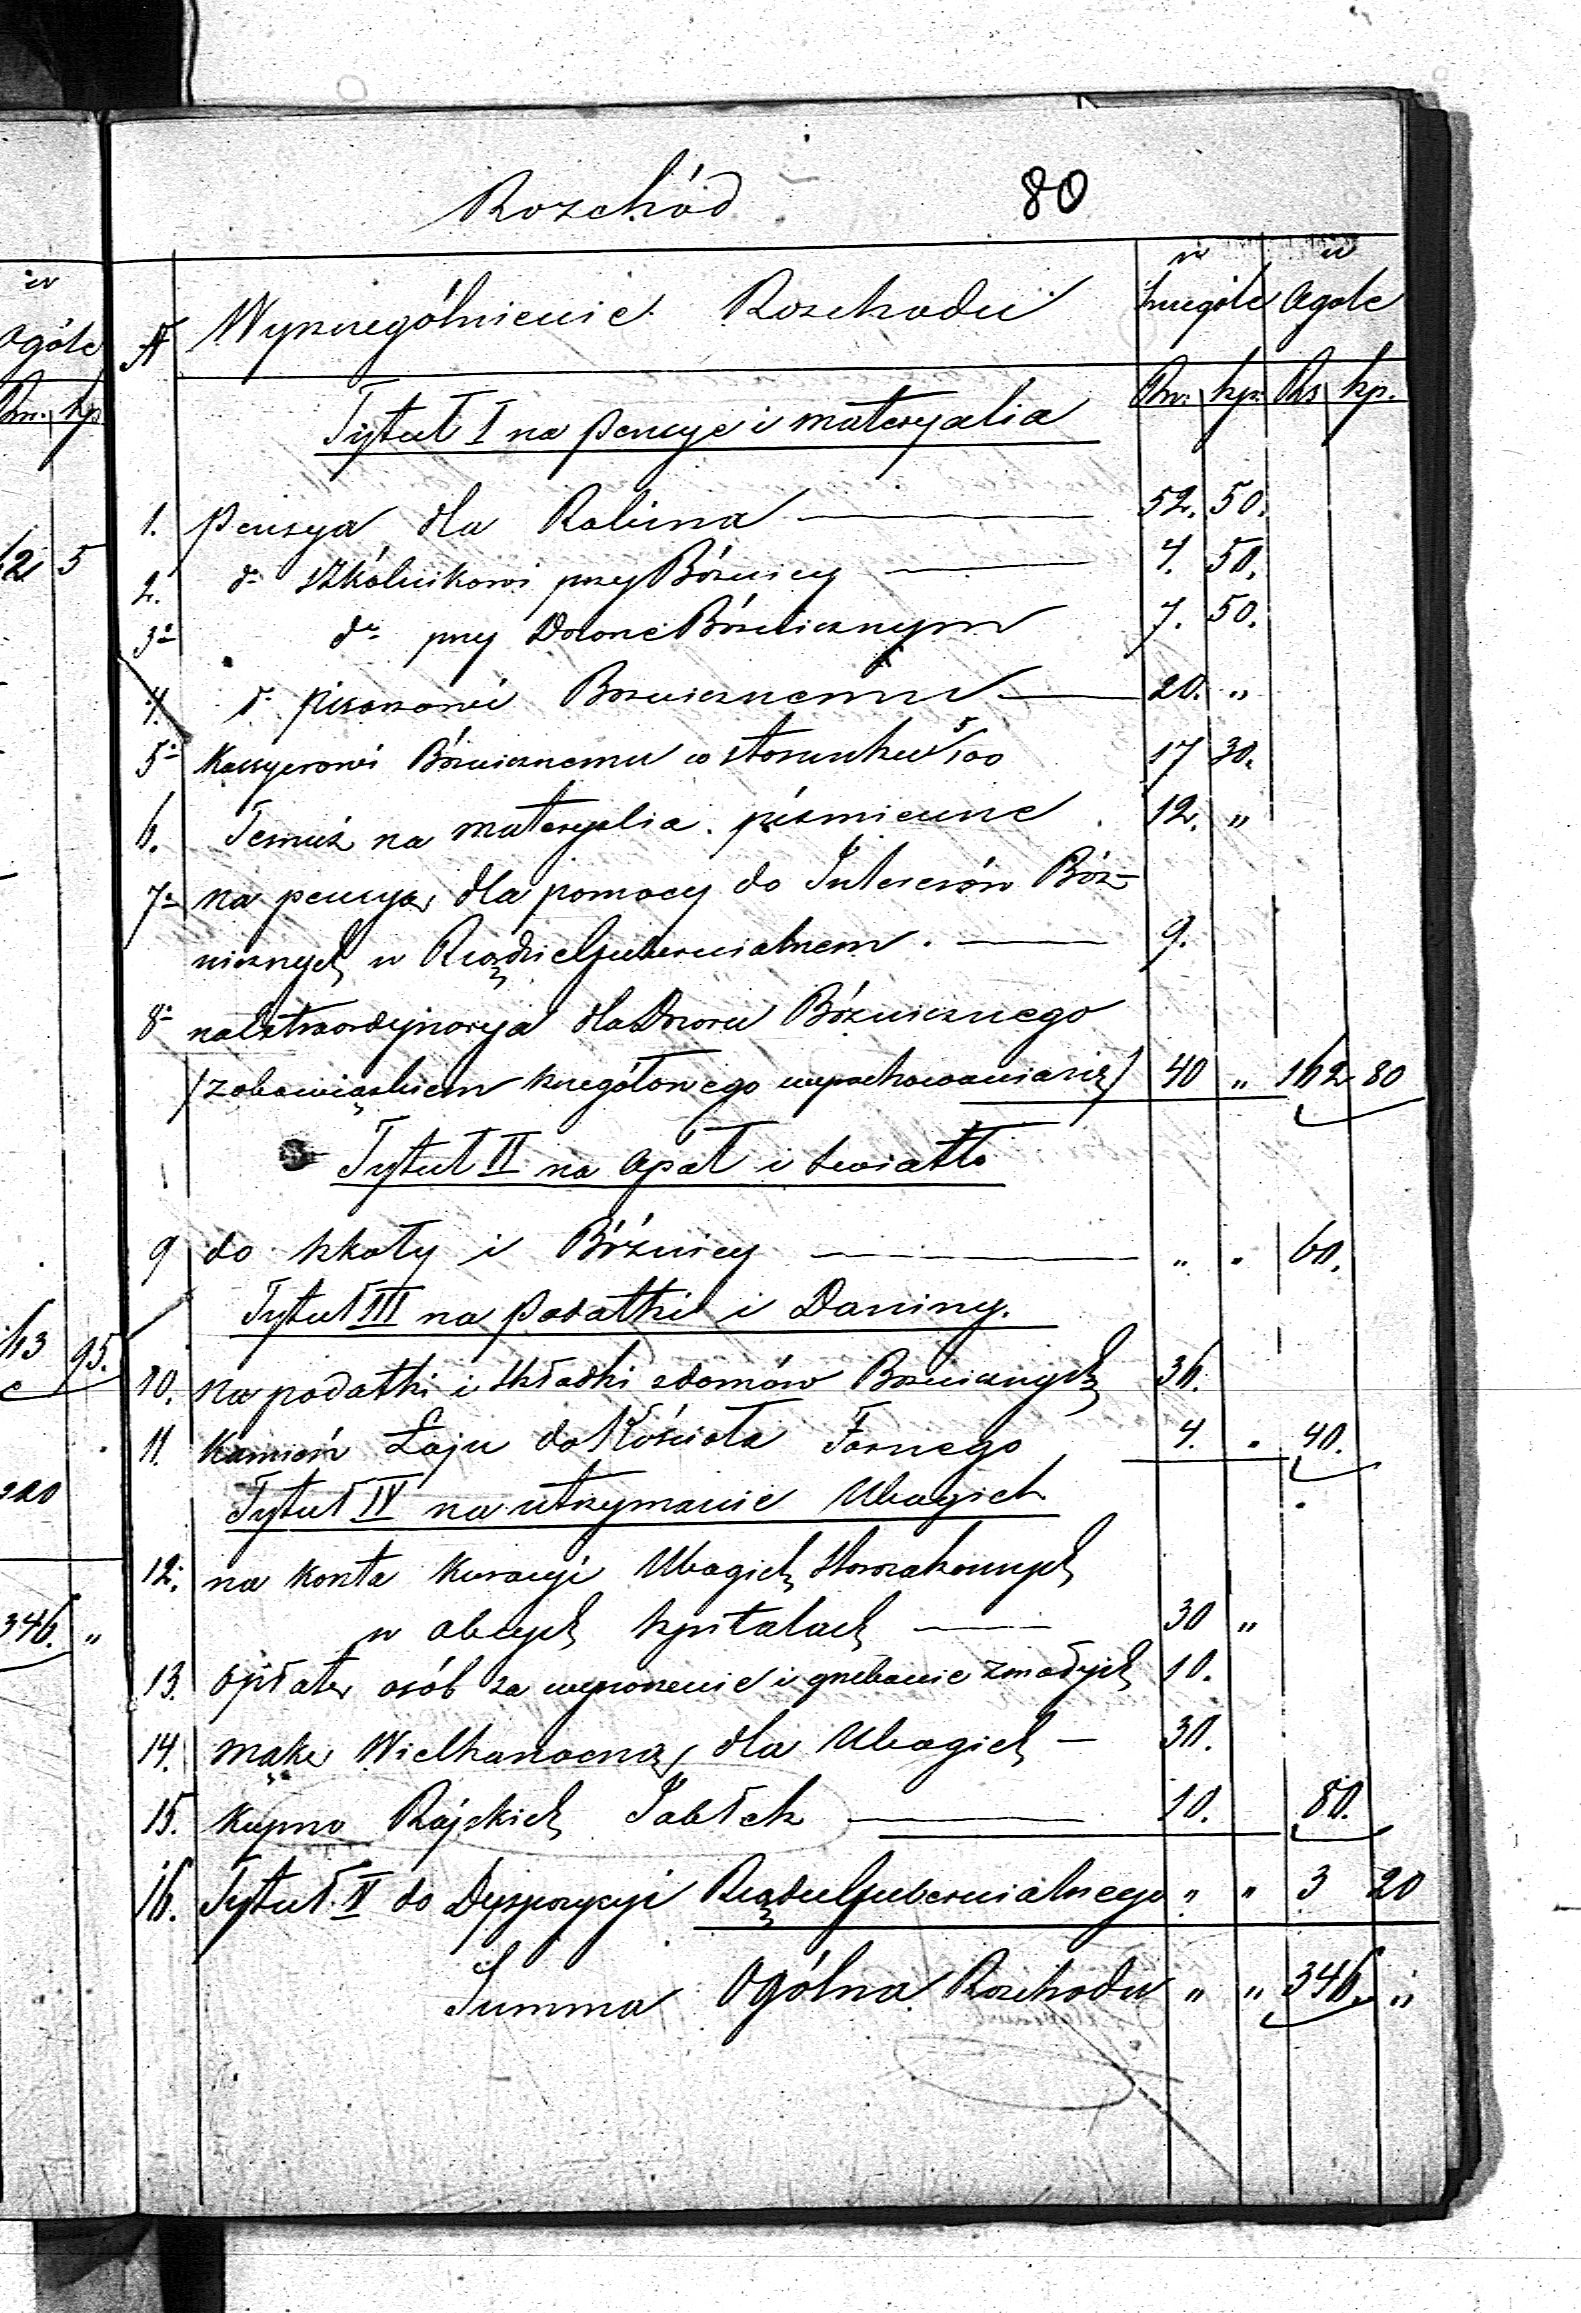 Rozchód 80
w w
w
Ogóle № Wyszczególnienie Rozchodu szczególe Ogole
Rsr. kp. Rsr. kp. Rs kp.
Tytuł I na pensye i materyalia
1. Pensya dla Rabina 52. 50.
2. do Szkólnikowi przy Bóżnicy 4. 50.
5
3. do przy Dozorze Bóżnicznym 7. 50.
4. do pisarzowi Boznicznemu 20. "
5. Kassyerowi Bóżnicznemu w stosunku 5/100 17 30.
6. Temuż na materyalia piśmienne 12. "
7. na pensye dla pomocy do Interesów Bóż-
nicznych w Rządzie Gubernialnem. 9.
8. na Extraordynarya dla Dozoru Bóżnicznego
(z obowiązkiem szczegółowego wyrachowania się) 40 " 162 80
Tytuł II na Opał i światło
9 do szkoły i Bóżnicy " " 60.
Tytuł III na Podatki i Daniny.
95.
10. na podatki i składki z domów Bożnicznych 36.
11. Kamień Łoju do Kościoła Farnego 4. " 40.
Tytuł IV na utrzymanie Ubogich
12. na koszta kuracyi Ubogich Starozakonnych
346. " w obcych szpitalach 30 "
13. opłatę osób za wynoszenie i grzebanie zmarłych 10.
14. mąkę Wielkanocną dla Ubogich 30.
15. Kupno Rajskich Jabłek 10. 80.
16. Tytuł V do Dyspozycyi Rządu Gubernialnego " " 3 20
Summa Ogólna Rozchodu " " 346. "